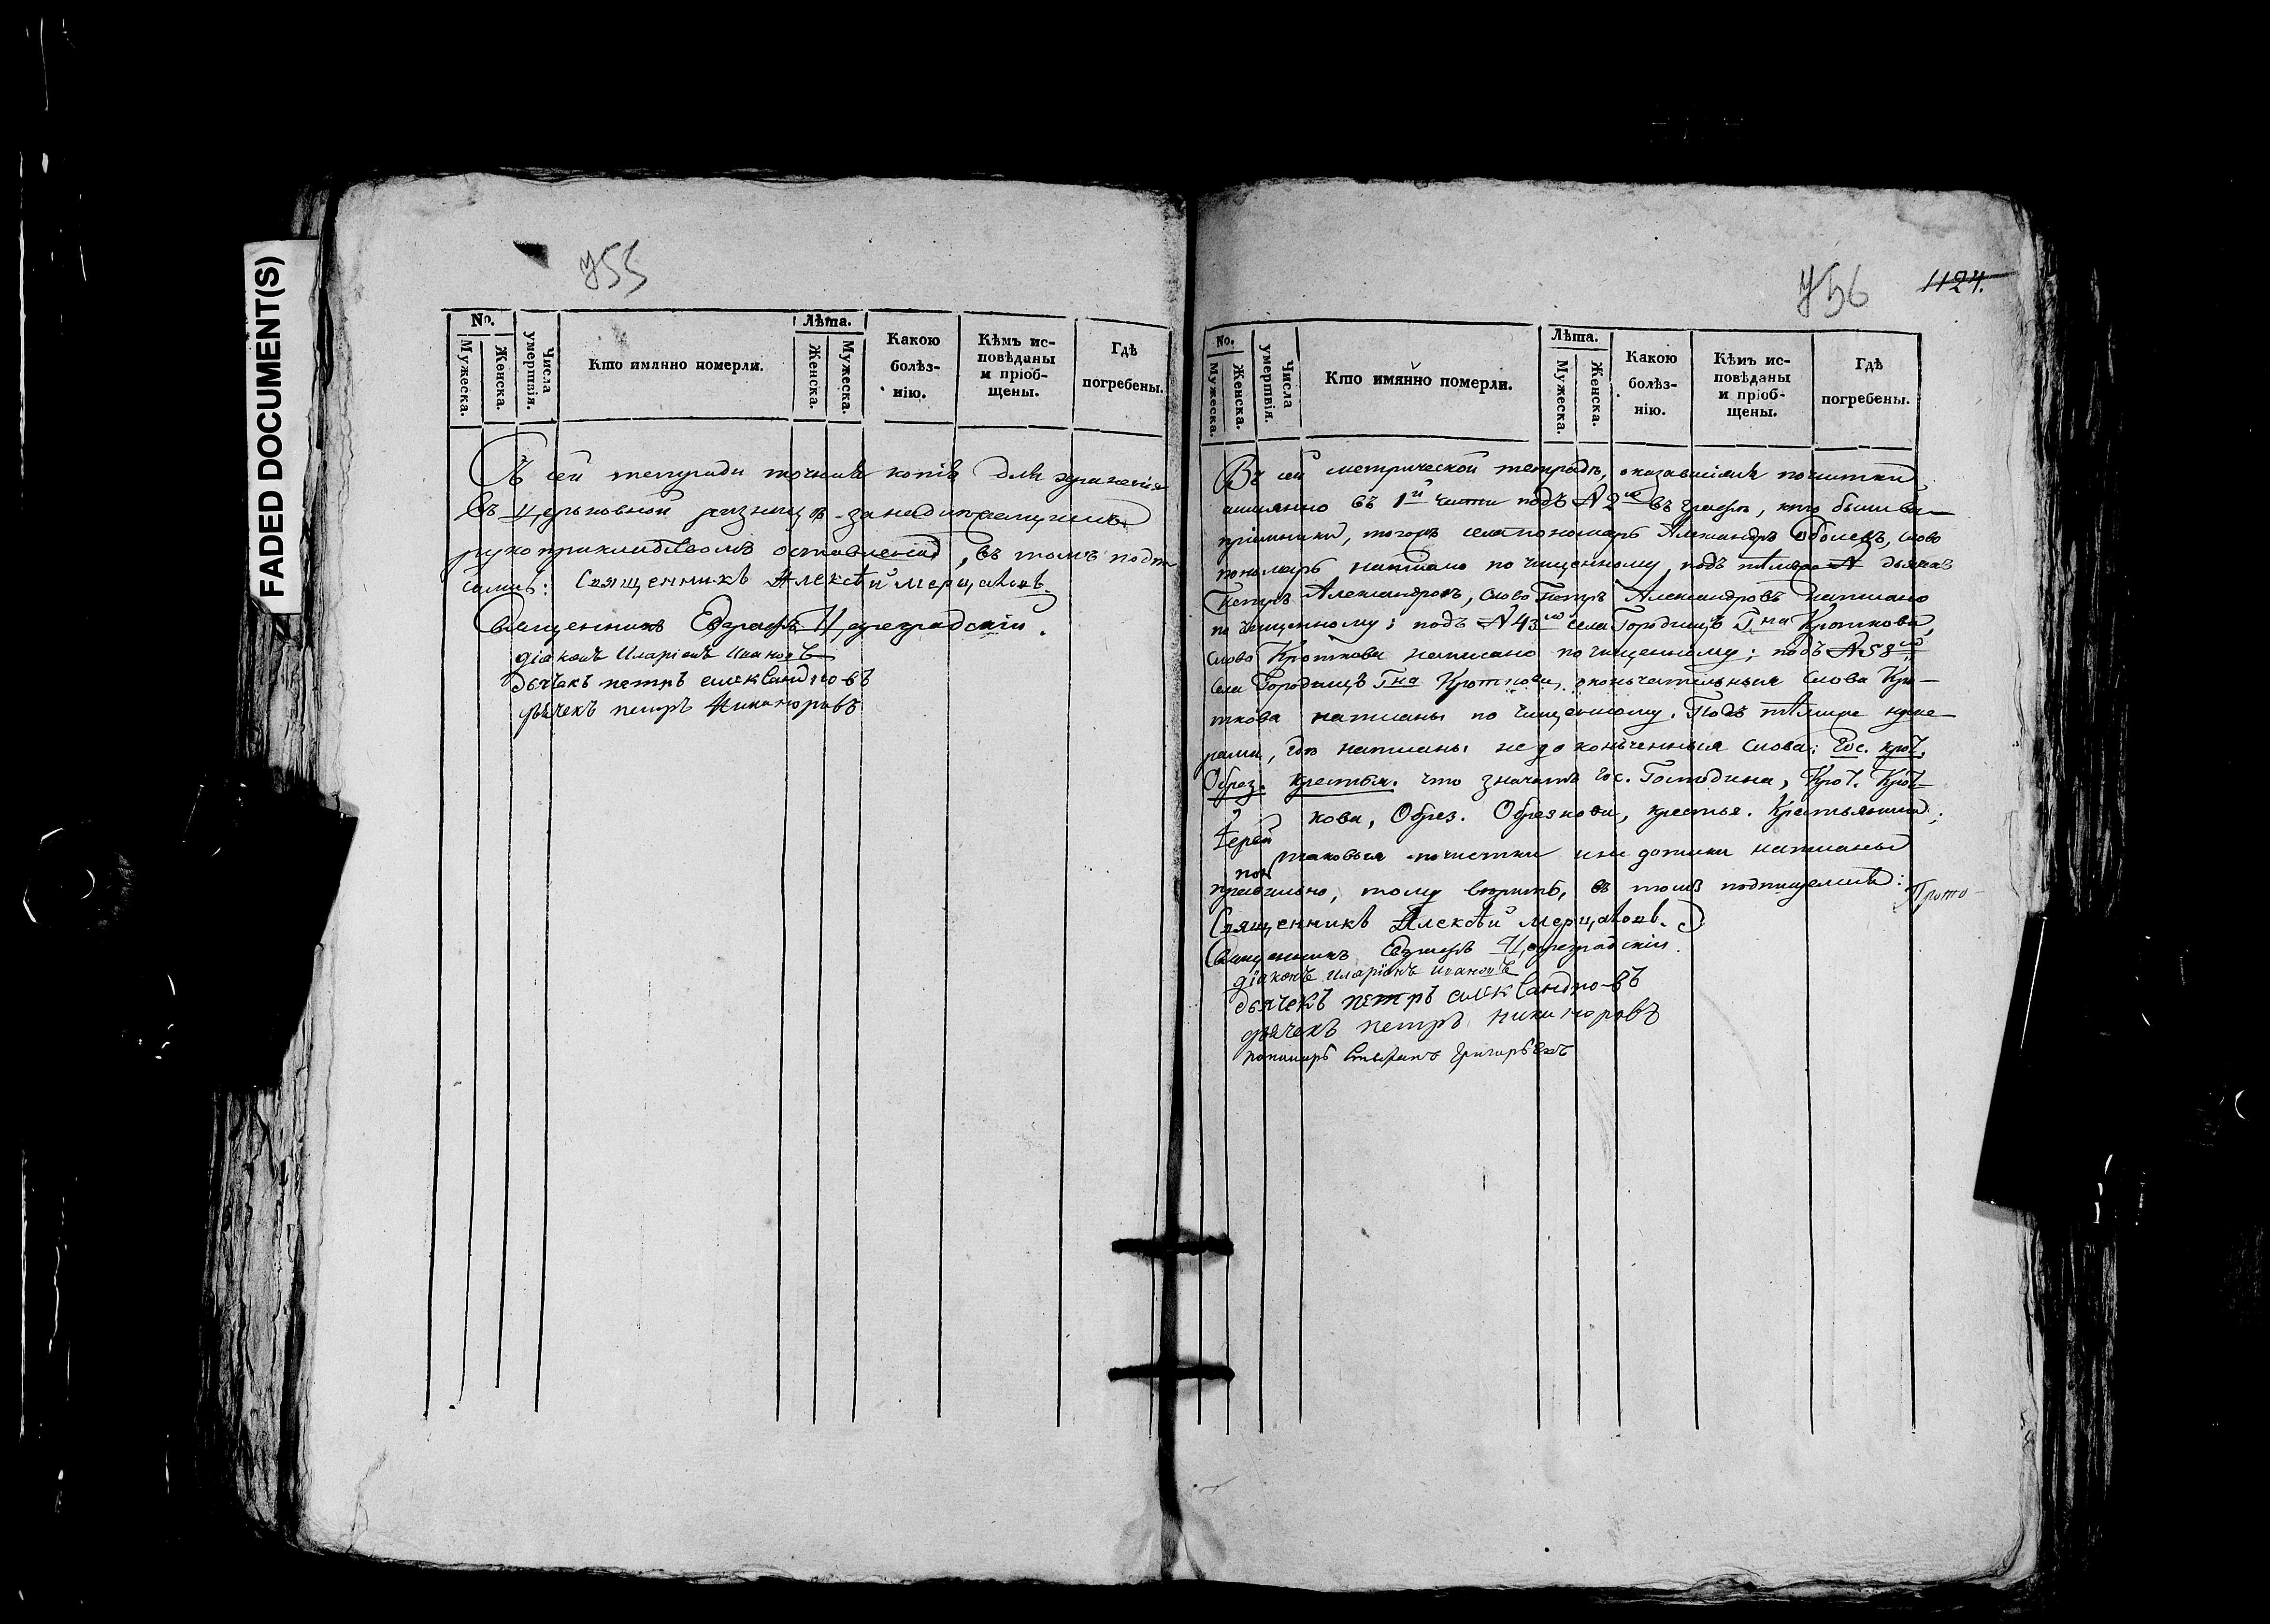 FADED DOCUMENT(S)
755
No.
Мужеска.
Женска.
Числа умертвія.
Кто имянно померли.
Лѣта.
Женска.
Мужеска.
Какою
болѣз-
нію.
Кѣмъ ис-
повѣданы
и пріоб-
щены.
Гдѣ
погребены.
Съ сей тетради точная копія для храненія
въ церьковной ризницѣ за надлежащимъ
рукоприкладствомъ оставлена, въ томъ подпи
сались: Священникъ Алексѣй Мерцаловъ.
Священникъ Евграфъ Цареградскій.
діаконъ Иларіонъ Ивановъ
дьячекъ петръ александровъ
дьячекъ петръ Никаноровъ
756
1124.
No.
Мужеска.
Женска.
Числа умертвія.
Кто имянно померли.
Лѣта.
Мужеска.
Женска.
Какою
болѣз-
нію.
Кѣмъ ис-
повѣданы
и пріоб-
щены.
Гдѣ
погребены.
Въ сей метрической тетради, оказавшіяся почистки,
аимянно въ 1й части подъ № 2мъ въ графѣ, кто были во-
пріимники, тогожъ села пономарь Александръ, слово
пономарь написано по чищенному, подъ тѣмже № дьячекъ
Петръ Александровъ, слово Петръ Александровъ написано
по чищенному; подъ № 43мъ села Городищъ Гна Кроткова,
слово Кроткова написано по чищенному; подъ № 58мъ
села Городищъ Гна Кроткова, оконьчательныя слова Кро-
ткова написаны по чищенному. Подъ тѣмиже нуме-
рами, гдѣ написаны не до коньченныя слова: Гос. крот.
Обрез. крестья. что значатъ Гос. Господина, Крот. Крот-
кова, Обрез. Обрезкова, крестья. Крестьянина;
таковыя почистки и не дописки написаны
правильно, тому вѣрить, въ томъ подпишемся:
Прото-
Іерей
поп
Священникъ Алексѣй Мерцаловъ.
Священникъ Евграфъ Цареградскій.
діаконъ Иларіонъ Ивановъ
дьячекъ петръ александровъ
дьячекъ петръ никаноровъ
пономарь Стефанъ Григорьевъ